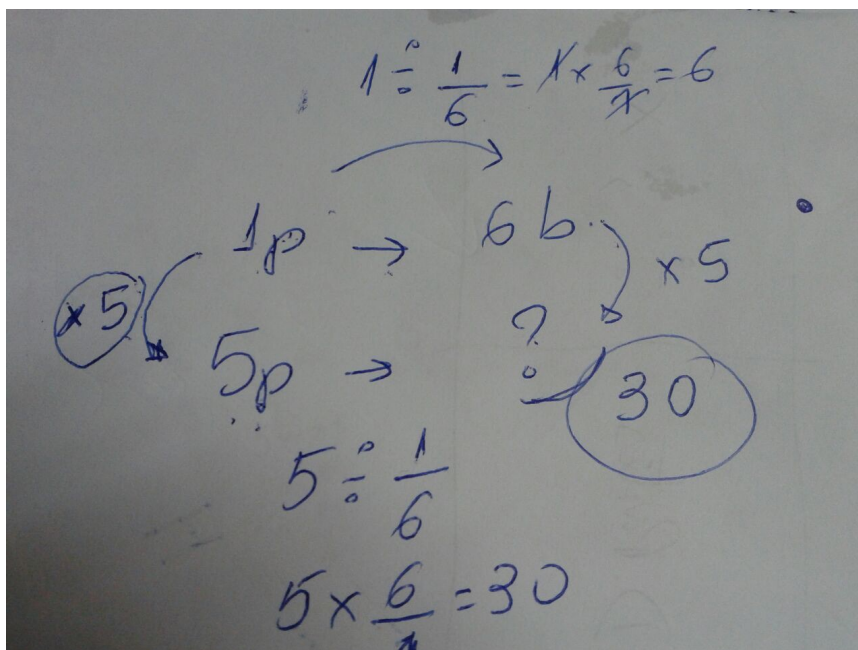 1 ÷ 1/6 = 1 × 6/1 = 6
1p → 6b
×5 ×5
5p → ? 30
5 ÷ 1/6
5 × 6/1 = 30